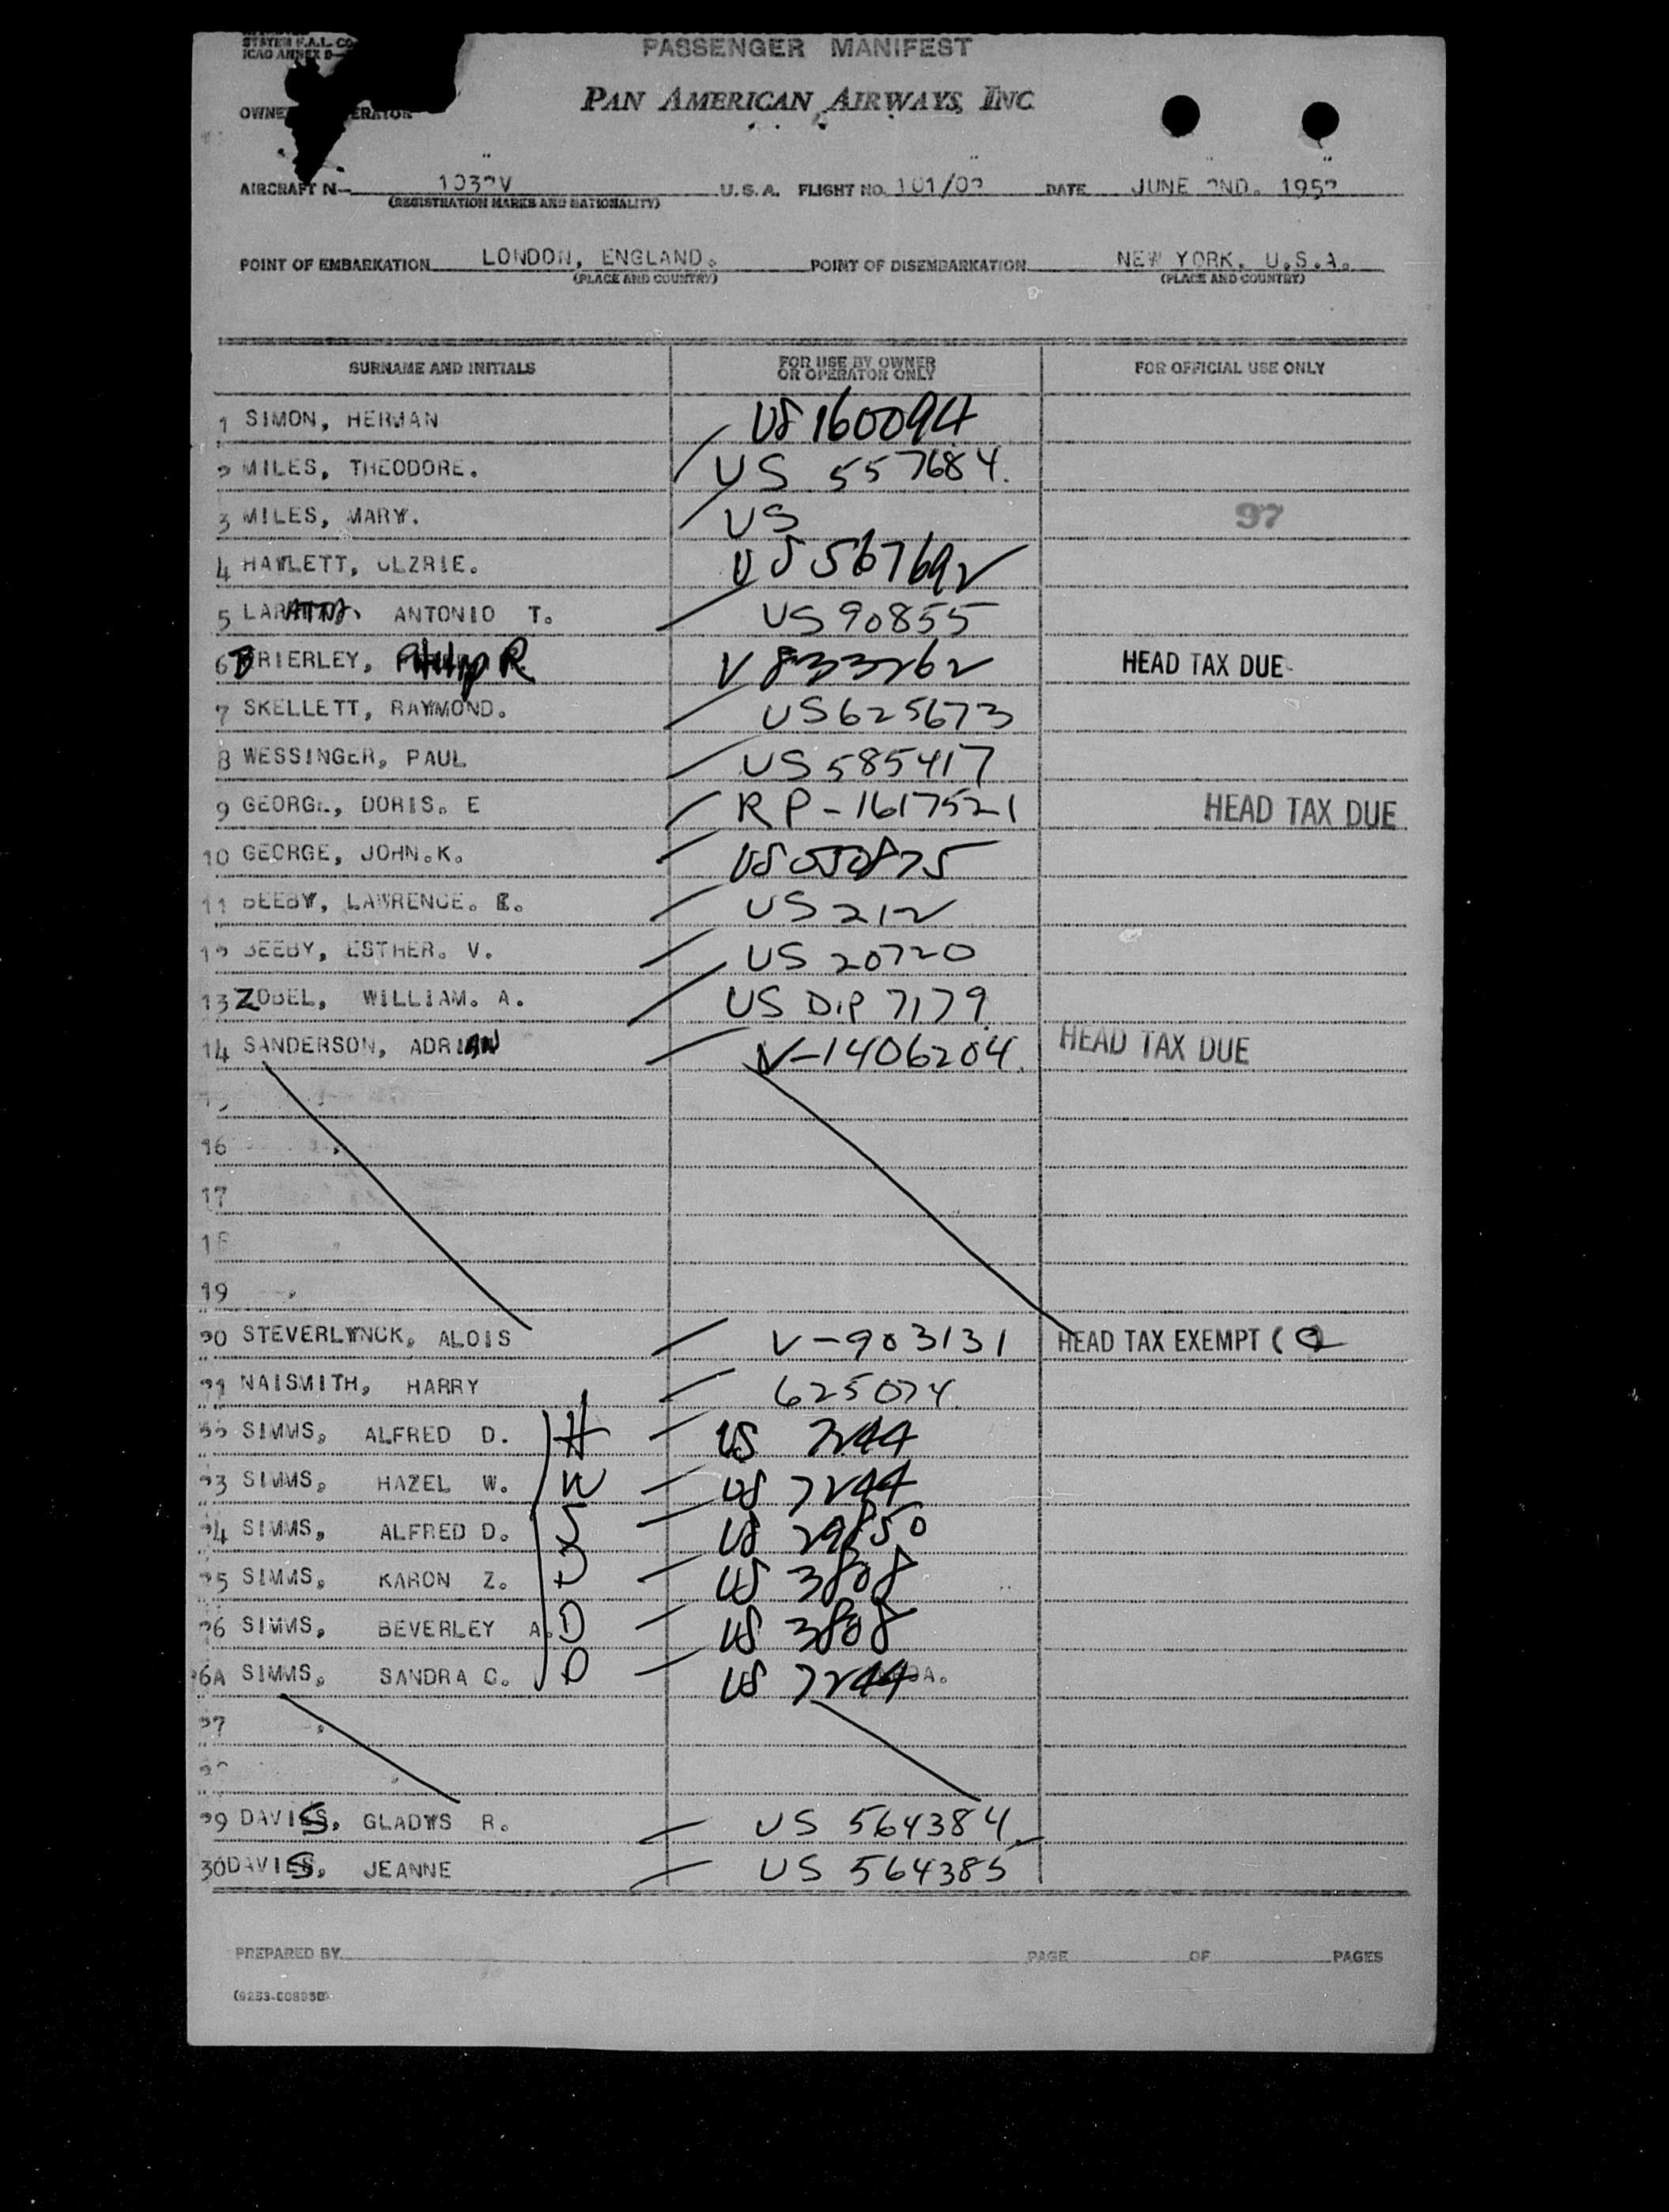 SYSTEM F.A.L. CO
ICAO ANNEX 9
PASSENGER MANIFEST
PAN AMERICAN AIRWAYS, INC
OWNE ERATOR
AIRCRAFT N 1032V U.S.A. FLIGHT NO. 101/02 DATE JUNE 2ND. 1952
(REGISTRATION MARKS AND NATIONALITY)
POINT OF EMBARKATION LONDON, ENGLAND. POINT OF DISEMBARKATION NEW YORK, U.S.A.
(PLACE AND COUNTRY) (PLACE AND COUNTRY)
SURNAME AND INITIALS FOR USE BY OWNER OR OPERATOR ONLY FOR OFFICIAL USE ONLY
1 SIMON, HERMAN US 160094
2 MILES, THEODORE. US 557684.
3 MILES, MARY. US 97
4 HAWLETT, US 567692
5 ANTONIO T. US 90855
6 BRIERLEY, Philip R V 833262 HEAD TAX DUE
7 SKELLETT, RAYMOND. US 625673
8 WESSINGER, PAUL US 585417
9 GEORGE, DORIS. E RP-1617521 HEAD TAX DUE
10 GEORGE, JOHN.K. US
11 BEEBY, LAWRENCE. E. US 212
12 BEEBY, ESTHER. V. US 20720
13 ZOBEL, WILLIAM. A. US DIP 7179
14 SANDERSON, ADRIAN V-1406204. HEAD TAX DUE
16
17
18
19
20 STEVERLYNCK, ALOIS V-903131 HEAD TAX EXEMPT (
21 NAISMITH, HARRY 625074
22 SIMMS, ALFRED D. H US 7244
23 SIMMS, HAZEL W. W US 7244
24 SIMMS, ALFRED D. S US 29850
25 SIMMS, KARON Z. D US 3808
26 SIMMS, BEVERLEY A. D US 3808
26A SIMMS, SANDRA C. D US 7244
27
29 DAVIS, GLADYS R. US 564384
30 DAVIES, JEANNE US 564385
PREPARED BY PAGE OF PAGES